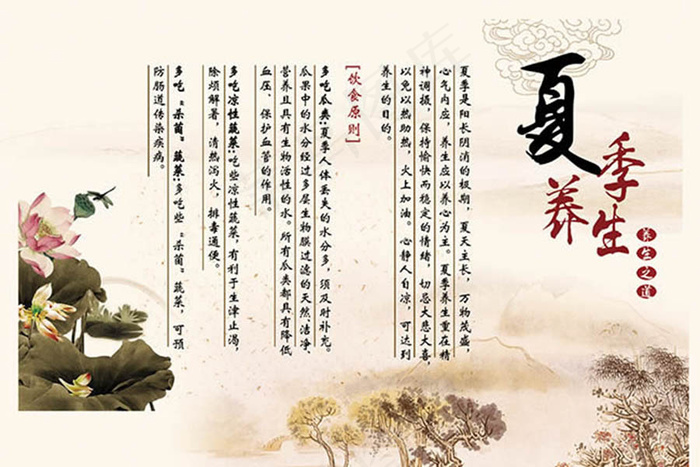 夏季养生
养生之道
夏季是阳长阴消的极期，夏天主长，万物茂盛，
心气内应，养生应以养心为主。夏季养生重在精
神调摄，保持愉快而稳定的情绪，切忌大悲大喜，
以免以热助热，火上加油。心静人自凉，可达到
养生的目的。
[饮食原则]
多吃瓜类:夏季人体丢失的水分多，须及时补充。
瓜果中的水分经过多层生物膜过滤的天然、洁净、
营养且具有生物活性的水。所有瓜类都具有降低
血压、保护血管的作用。
多吃凉性蔬菜:吃些凉性蔬菜，有利于生津止渴，
除烦解暑，清热泻火，排毒通便。
多吃“杀菌”蔬菜:多吃些“杀菌”蔬菜，可预
防肠道传染疾病。